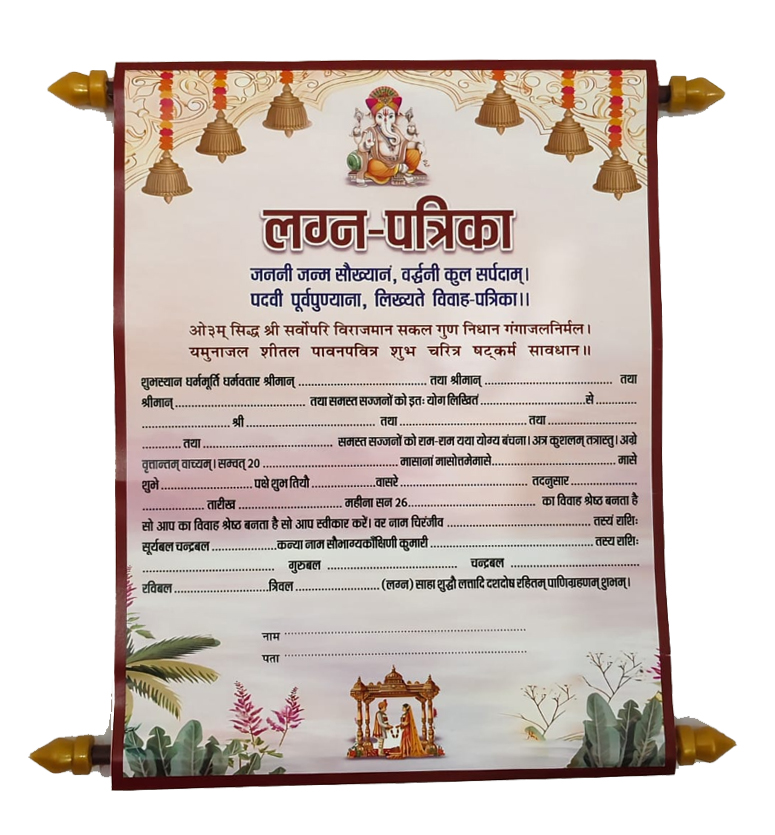 लग्न-पत्रिका
जननी जन्म सौख्यानं, वर्द्धनी कुल सर्पदाम्।
पदवी पूर्वपुण्याना, लिख्यते विवाह-पत्रिका।।
ओ३म् सिद्ध श्री सर्वोपरि विराजमान सकल गुण निधान गंगाजलनिर्मल।
यमुनाजल शीतल पावनपवित्र शुभ चरित्र षट्कर्म सावधान॥
शुभस्थान धर्ममूर्ति धर्मवतार श्रीमान् .................................. तथा श्रीमान् .................................. तथा
श्रीमान् .................................. तथा समस्त सज्जनों को इतः योग लिखितं ...........................से ...........
.......................श्री .................................. तथा .................................. तथा .......................
...........तथा .................................. समस्त सज्जनों को राम-राम यथा योग्य बंचना। अत्र कुशलम् तत्रास्तु। अग्रे
वृत्तान्तम् वाच्यम्। सम्वत् 20 .................................. मासानां मासोत्तमेमासे.................................. मासे
शुभे .......................पक्षे शुभ तिथौ .......................वासरे .................................. तदनुसार .......................
................ तारीख .................................. महीना सन 26.................................. का विवाह श्रेष्ठ बनता है
सो आप का विवाह श्रेष्ठ बनता है सो आप स्वीकार करें। वर नाम चिरंजीव .................................. तस्यं राशिः
सूर्यबल चन्द्रबल ................कन्या नाम सौभाग्यकाँक्षिणी कुमारी .................................. तस्य राशिः
.................................. गुरुबल .................................. चन्द्रबल ..................................
रविबल .......................त्रिवल .......................(लग्न) साहा शुद्धौ लत्तादि दशदोष रहितम् पाणिग्रहणम् शुभम्।
नाम ..................................
पता ..................................